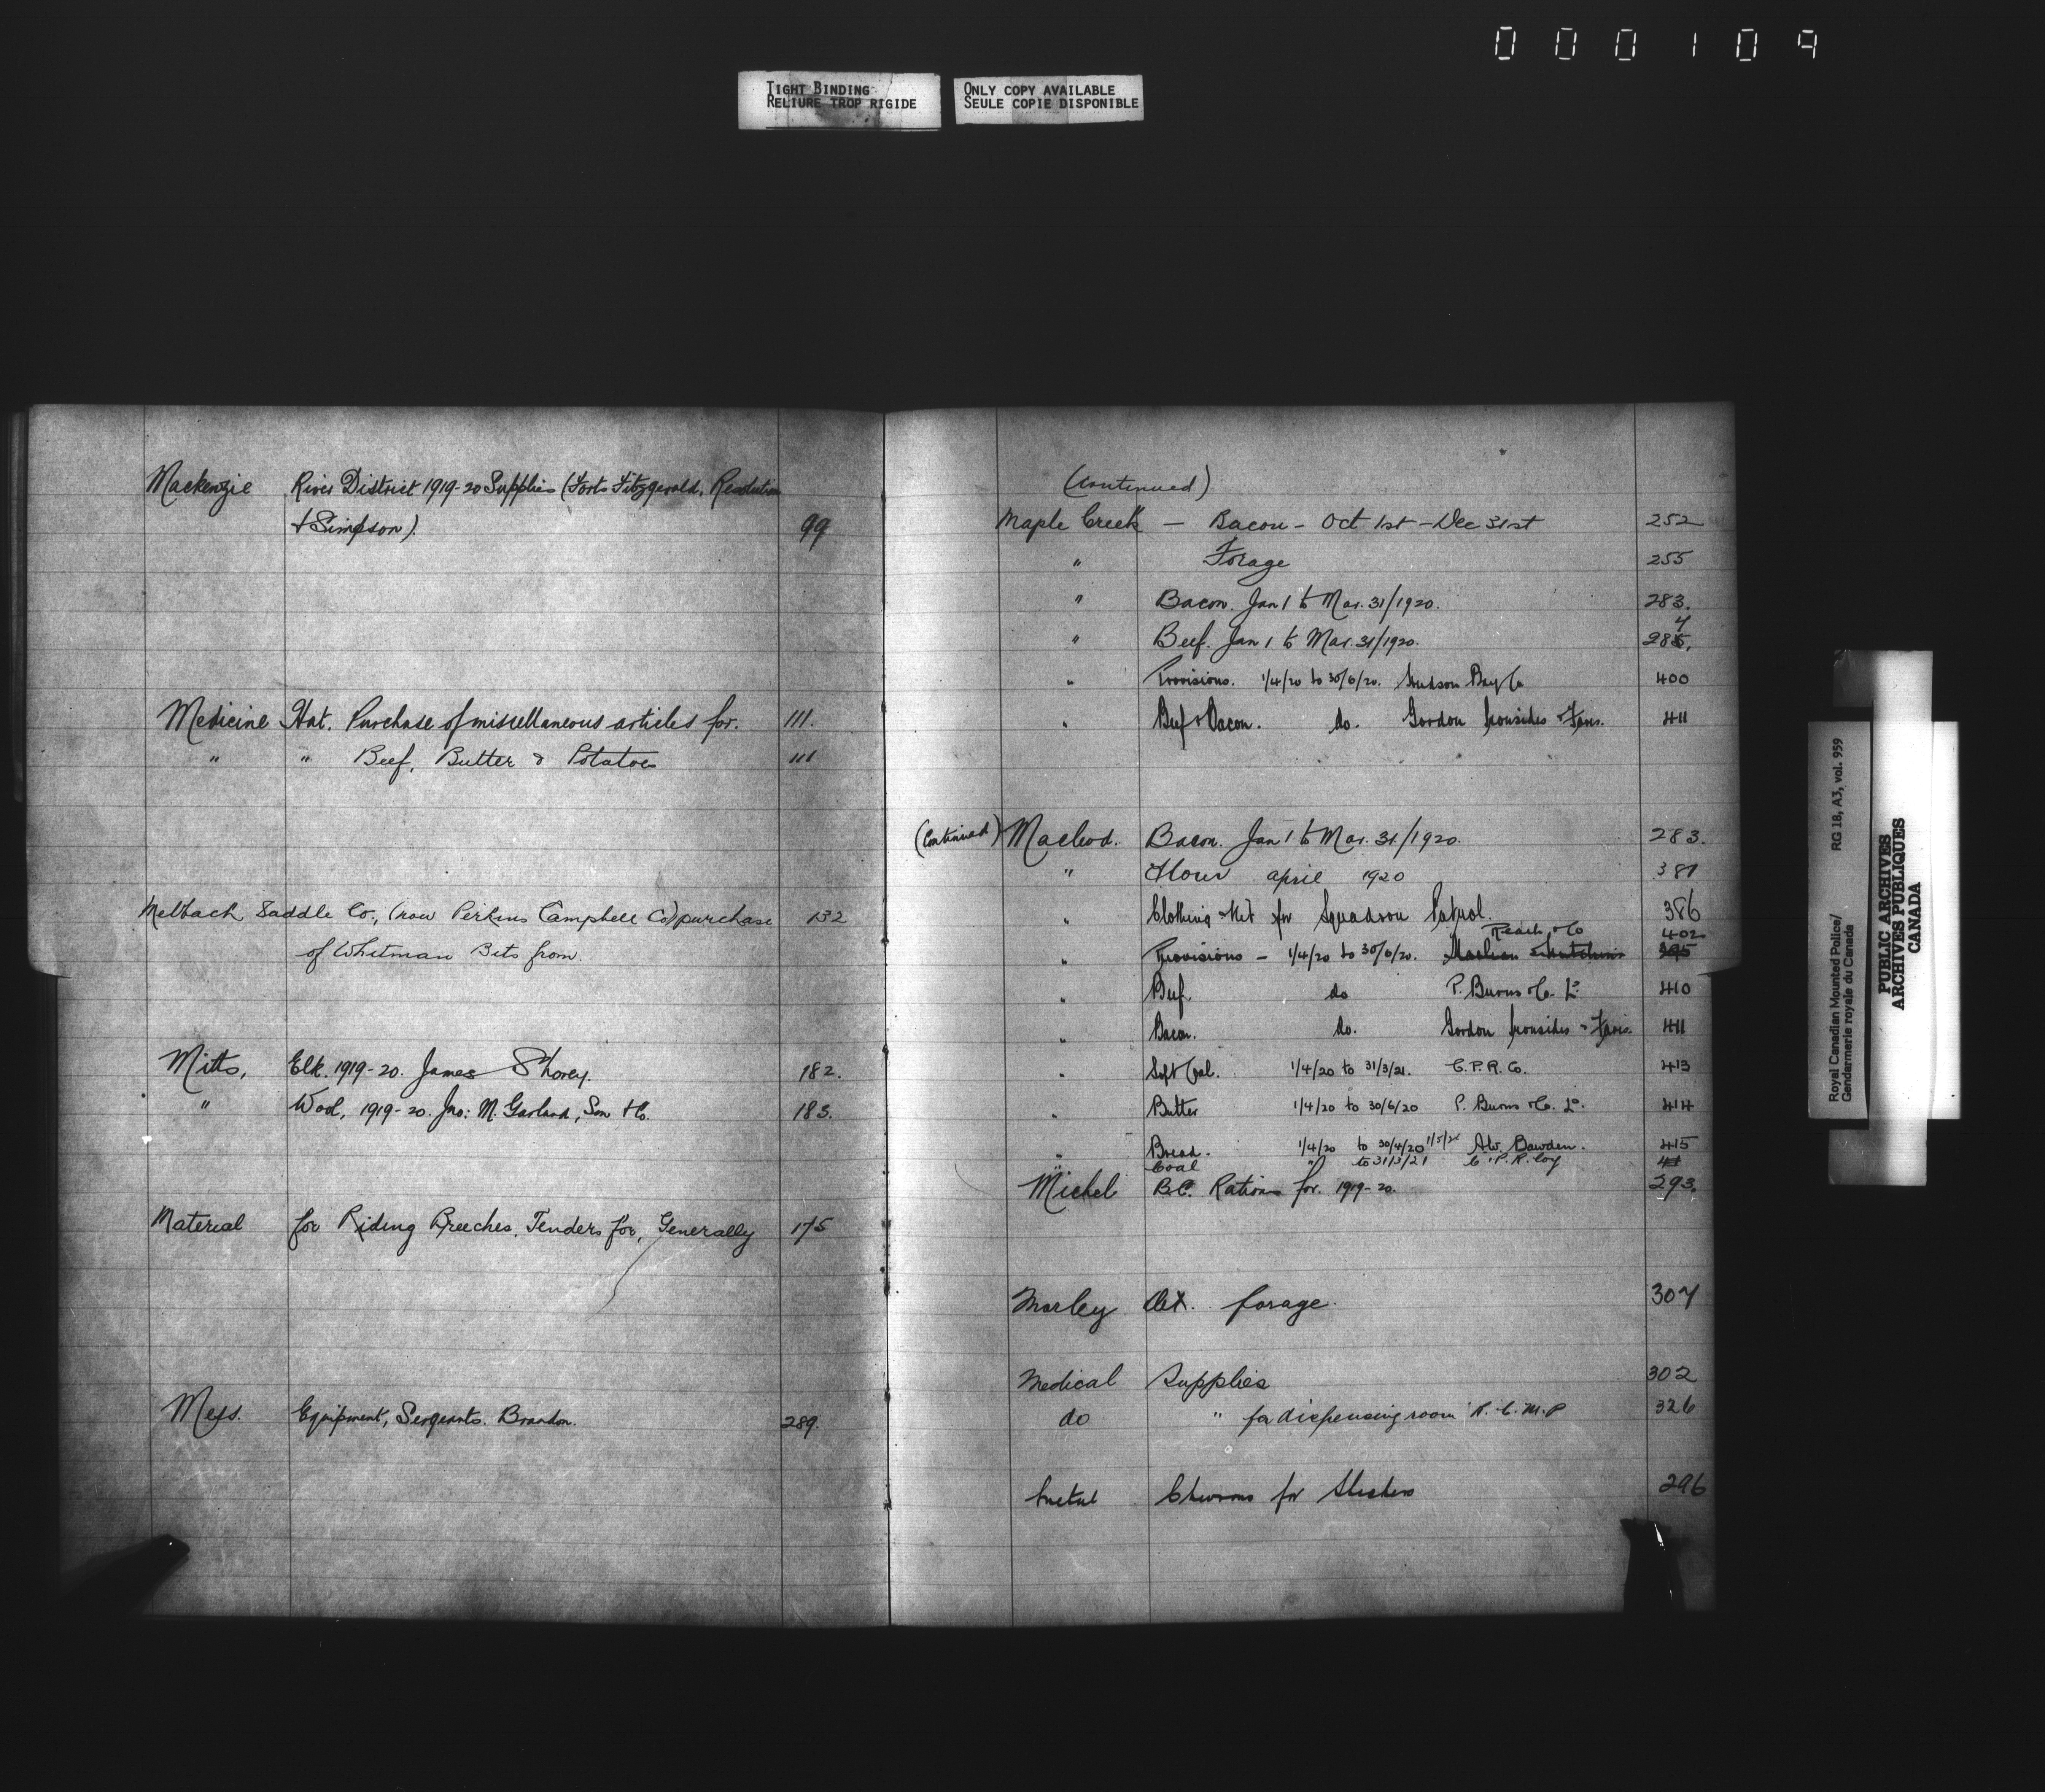 000109
TIGHT BINDING
RELIURE TROP RIGIDE
ONLY COPY AVAILABLE
SEULE COPIE DISPONIBLE
Mackenzie River District 1919-20 Supplies (Forts Fitzgerald, Resolution
& Simpson). 99
Medicine Hat. Purchase of miscellaneous articles for. 111.
" " Beef, Butter & Potatoes 111
Melbach Saddle Co., (now Perkins Campbell Co) purchase 132
of Whitman Bits from.
Mitts, Elk. 1919-20. James Shorey. 182.
" Wool, 1919-20. Jno: M. Garland, Son & Co. 183.
Material for Riding Breeches, Tenders for, Generally 175
Mess. Equipment, Sergeants. Brandon. 289.
(Continued)
Maple Creek — Bacon - Oct 1st - Dec 31st 252
" Forage 255
" Bacon. Jan 1 to Mar. 31/1920. 283.
" Beef. Jan 1 to Mar. 31/1920. 284
" Provisions. 1/4/20 to 30/6/20. Hudson Bay Co 400
" Beef & Bacon. do. Gordon Ironsides & Fares. 411
(Continued) Macleod. Bacon. Jan 1 to Mar. 31/1920. 283.
" Flour april 1920 387
" Clothing & Kit for Squadron Patrol. 386
Reach & Co 402
" Provisions - 1/4/20 to 30/6/20. 395
" Beef. do P. Burns & Co. Ld. 410
" Bacon. do. Gordon Ironsides & Fares. 411
" Soft Coal. 1/4/20 to 31/3/21. C.P.R. Co. 413
" Butter 1/4/20 to 30/6/20 P. Burns & Co. Ld. 414
" Bread. 1/4/20 to 30/4/20 A.W. Bawden. 415
" Coal " to 31/3/21 C.P.R. Coy
Michel B.C. Rations for. 1919-20. 293.
Morley Det. forage. 307
Medical Supplies 302
do " for dispensing room R.C.M.P 326
Metal Chevrons for 296
Royal Canadian Mounted Police/ RG 18, A3, vol. 959
Gendarmerie royale du Canada
PUBLIC ARCHIVES
ARCHIVES PUBLIQUES
CANADA